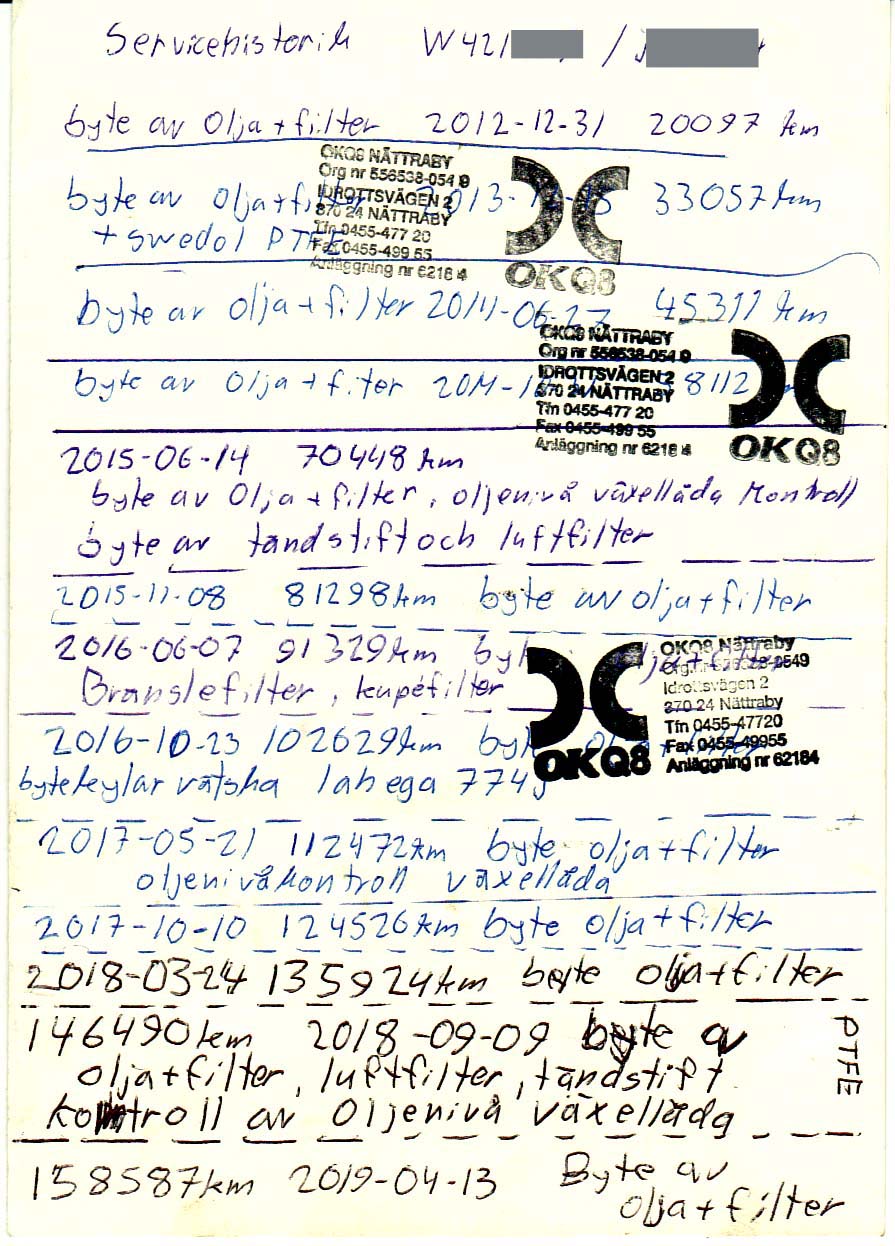 Servicehistorik W421 /
byte av olja + filter 2012-12-31 20097 km
OKQ8 NÄTTRABY
Org nr 556538-054 9
IDROTTSVÄGEN 2
370 24 NÄTTRABY
Tfn 0455-477 20
Fax 0455-499 55
Anläggning nr 6218 4
OKQ8
byte av olja + filter 2013-12-15 33057 km
+ swedol PTFE
byte av olja + filter 2014-06-27 45311 km
OKQ8 NÄTTRABY
Org nr 556538-054 9
IDROTTSVÄGEN 2
370 24 NÄTTRABY
Tfn 0455-477 20
Fax 0455-499 55
Anläggning nr 6218 4
OKQ8
byte av olja + filter 8112
2015-06-14 70448 km
byte av olja + filter, oljenivå växellåda kontroll
byte av tändstift och luftfilter
2015-11-08 81298 km byte av olja + filter
2016-06-07 91329 km byte olja + filter
Bränslefilter, kupéfilter
OKQ8 Nättraby
Org.nr 556538-0549
Idrottsvägen 2
370 24 Nättraby
Tfn 0455-47720
Fax 0455-49955
Anläggning nr 62184
OKQ8
2016-10-23 102629 km byte olja + filter
byte kylar vätska lahega 774
2017-05-21 112472 km byte olja + filter
oljenivåkontroll växellåda
2017-10-10 124526 km byte olja + filter
2018-03-24 135924 km byte olja + filter
146490 km 2018-09-09 byte av
olja + filter, luftfilter, tändstift
kontroll av Oljenivå växellåda
PTFE
158587 km 2019-04-13 Byte av
olja + filter